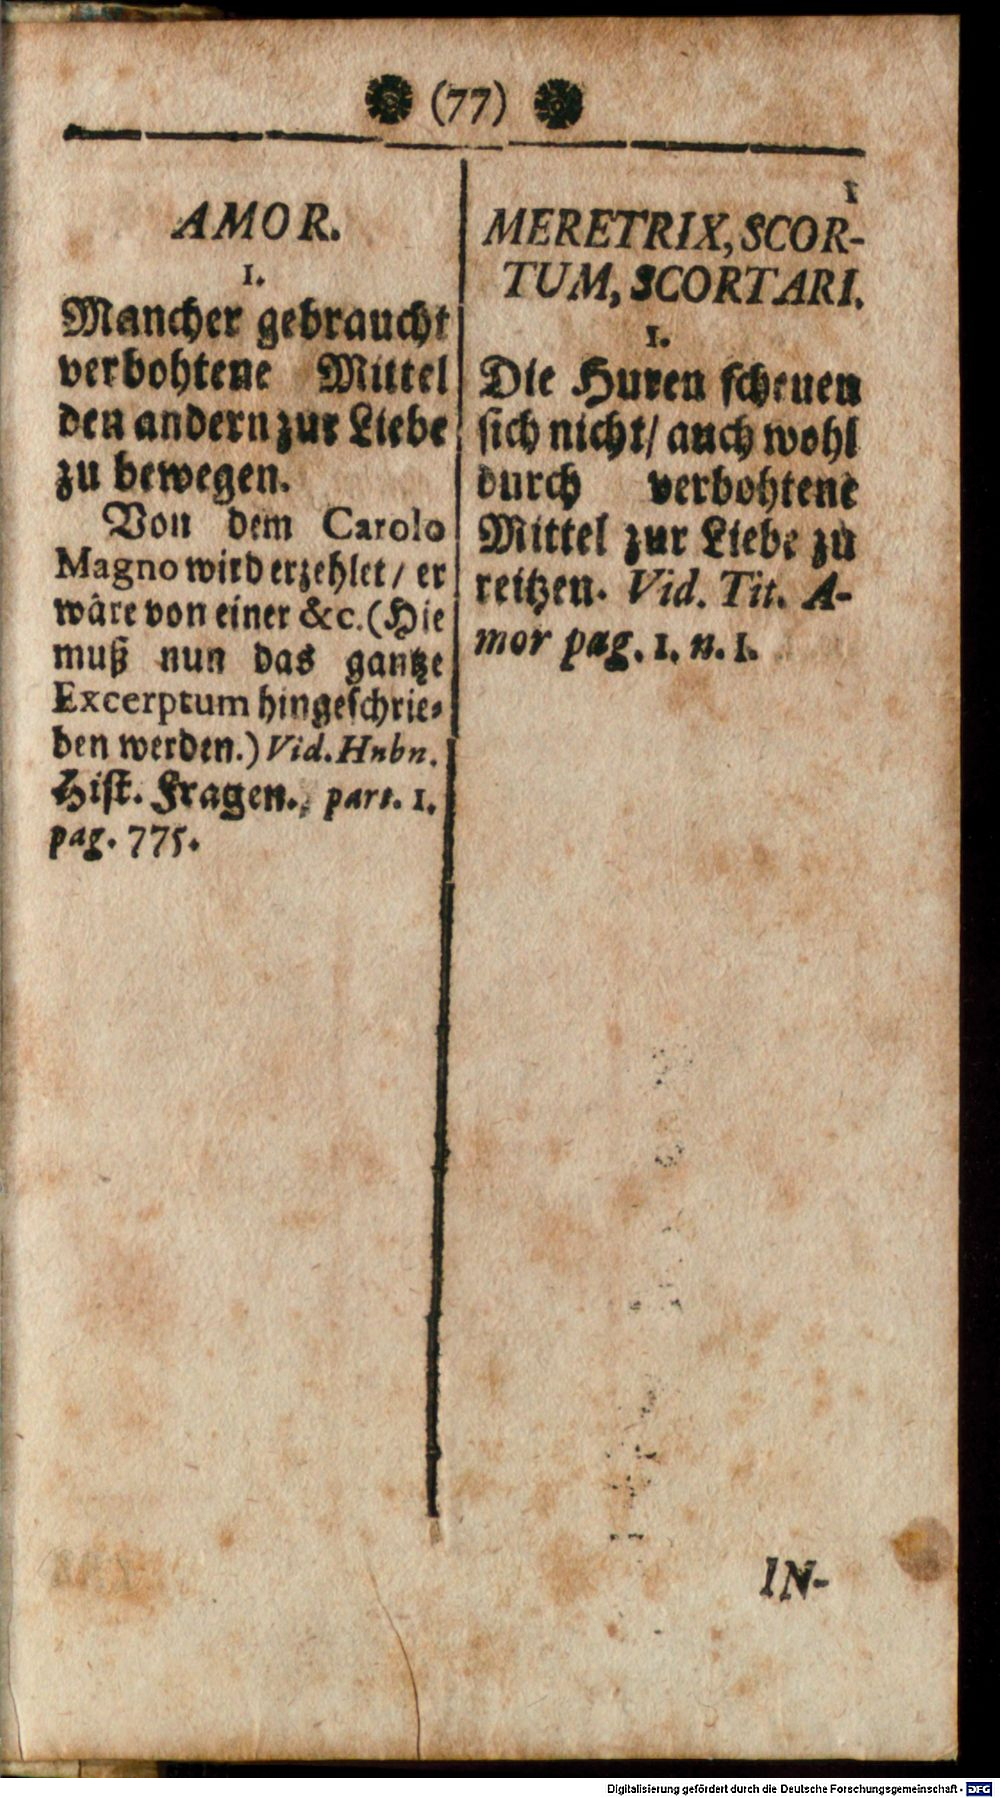 (77)
AMOR.
1.
Mancher gebraucht
verbohtene Mittel
den andern zur Liebe
zu bewegen.
Von dem Carolo
Magno wird erzehlet / er
wäre von einer &c. (Hie
muß nun das gantze
Excerptum hingeschrie-
ben werden.) Vid. Hubn.
Hist. Fragen., part. 1.
pag. 775.
1
MERETRIX, SCOR-
TUM, SCORTARI.
1.
Die Huren scheuen
sich nicht / auch wohl
durch verbohtene
Mittel zur Liebe zu
reitzen. Vid. Tit. A-
mor pag. 1. n. 1.
IN-
Digitalisierung gefördert durch die Deutsche Forschungsgemeinschaft - DFG